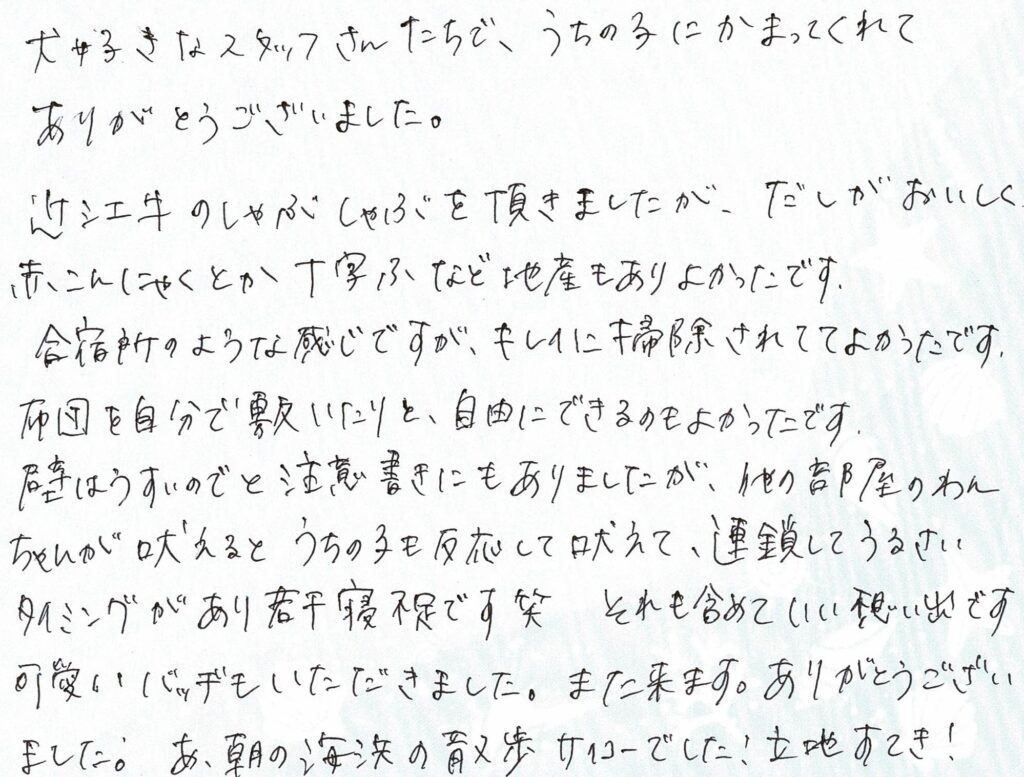 犬好きなスタッフさんたちで、うちの子にかまってくれて
ありがとうございました。
近江牛のしゃぶしゃぶを頂きましたが、だしがおいしく
赤こんにゃくとか丁字ふなど地産もありよかったです.
合宿所のような感じですが、キレイに掃除されててよかったです.
布団を自分で敷いたりと、自由にできるのもよかったです.
壁はうすいのでと注意書きにもありましたが、他の部屋のわん
ちゃんが吠えるとうちの子も反応して吠えて、連鎖してうるさい
タイミングがあり若干寝不足です笑 それも含めていい想い出です
可愛いバッヂもいただきました。また来ます。ありがとうござい
ました。あ、朝の海浜の散歩サイコーでした!立地すてき!